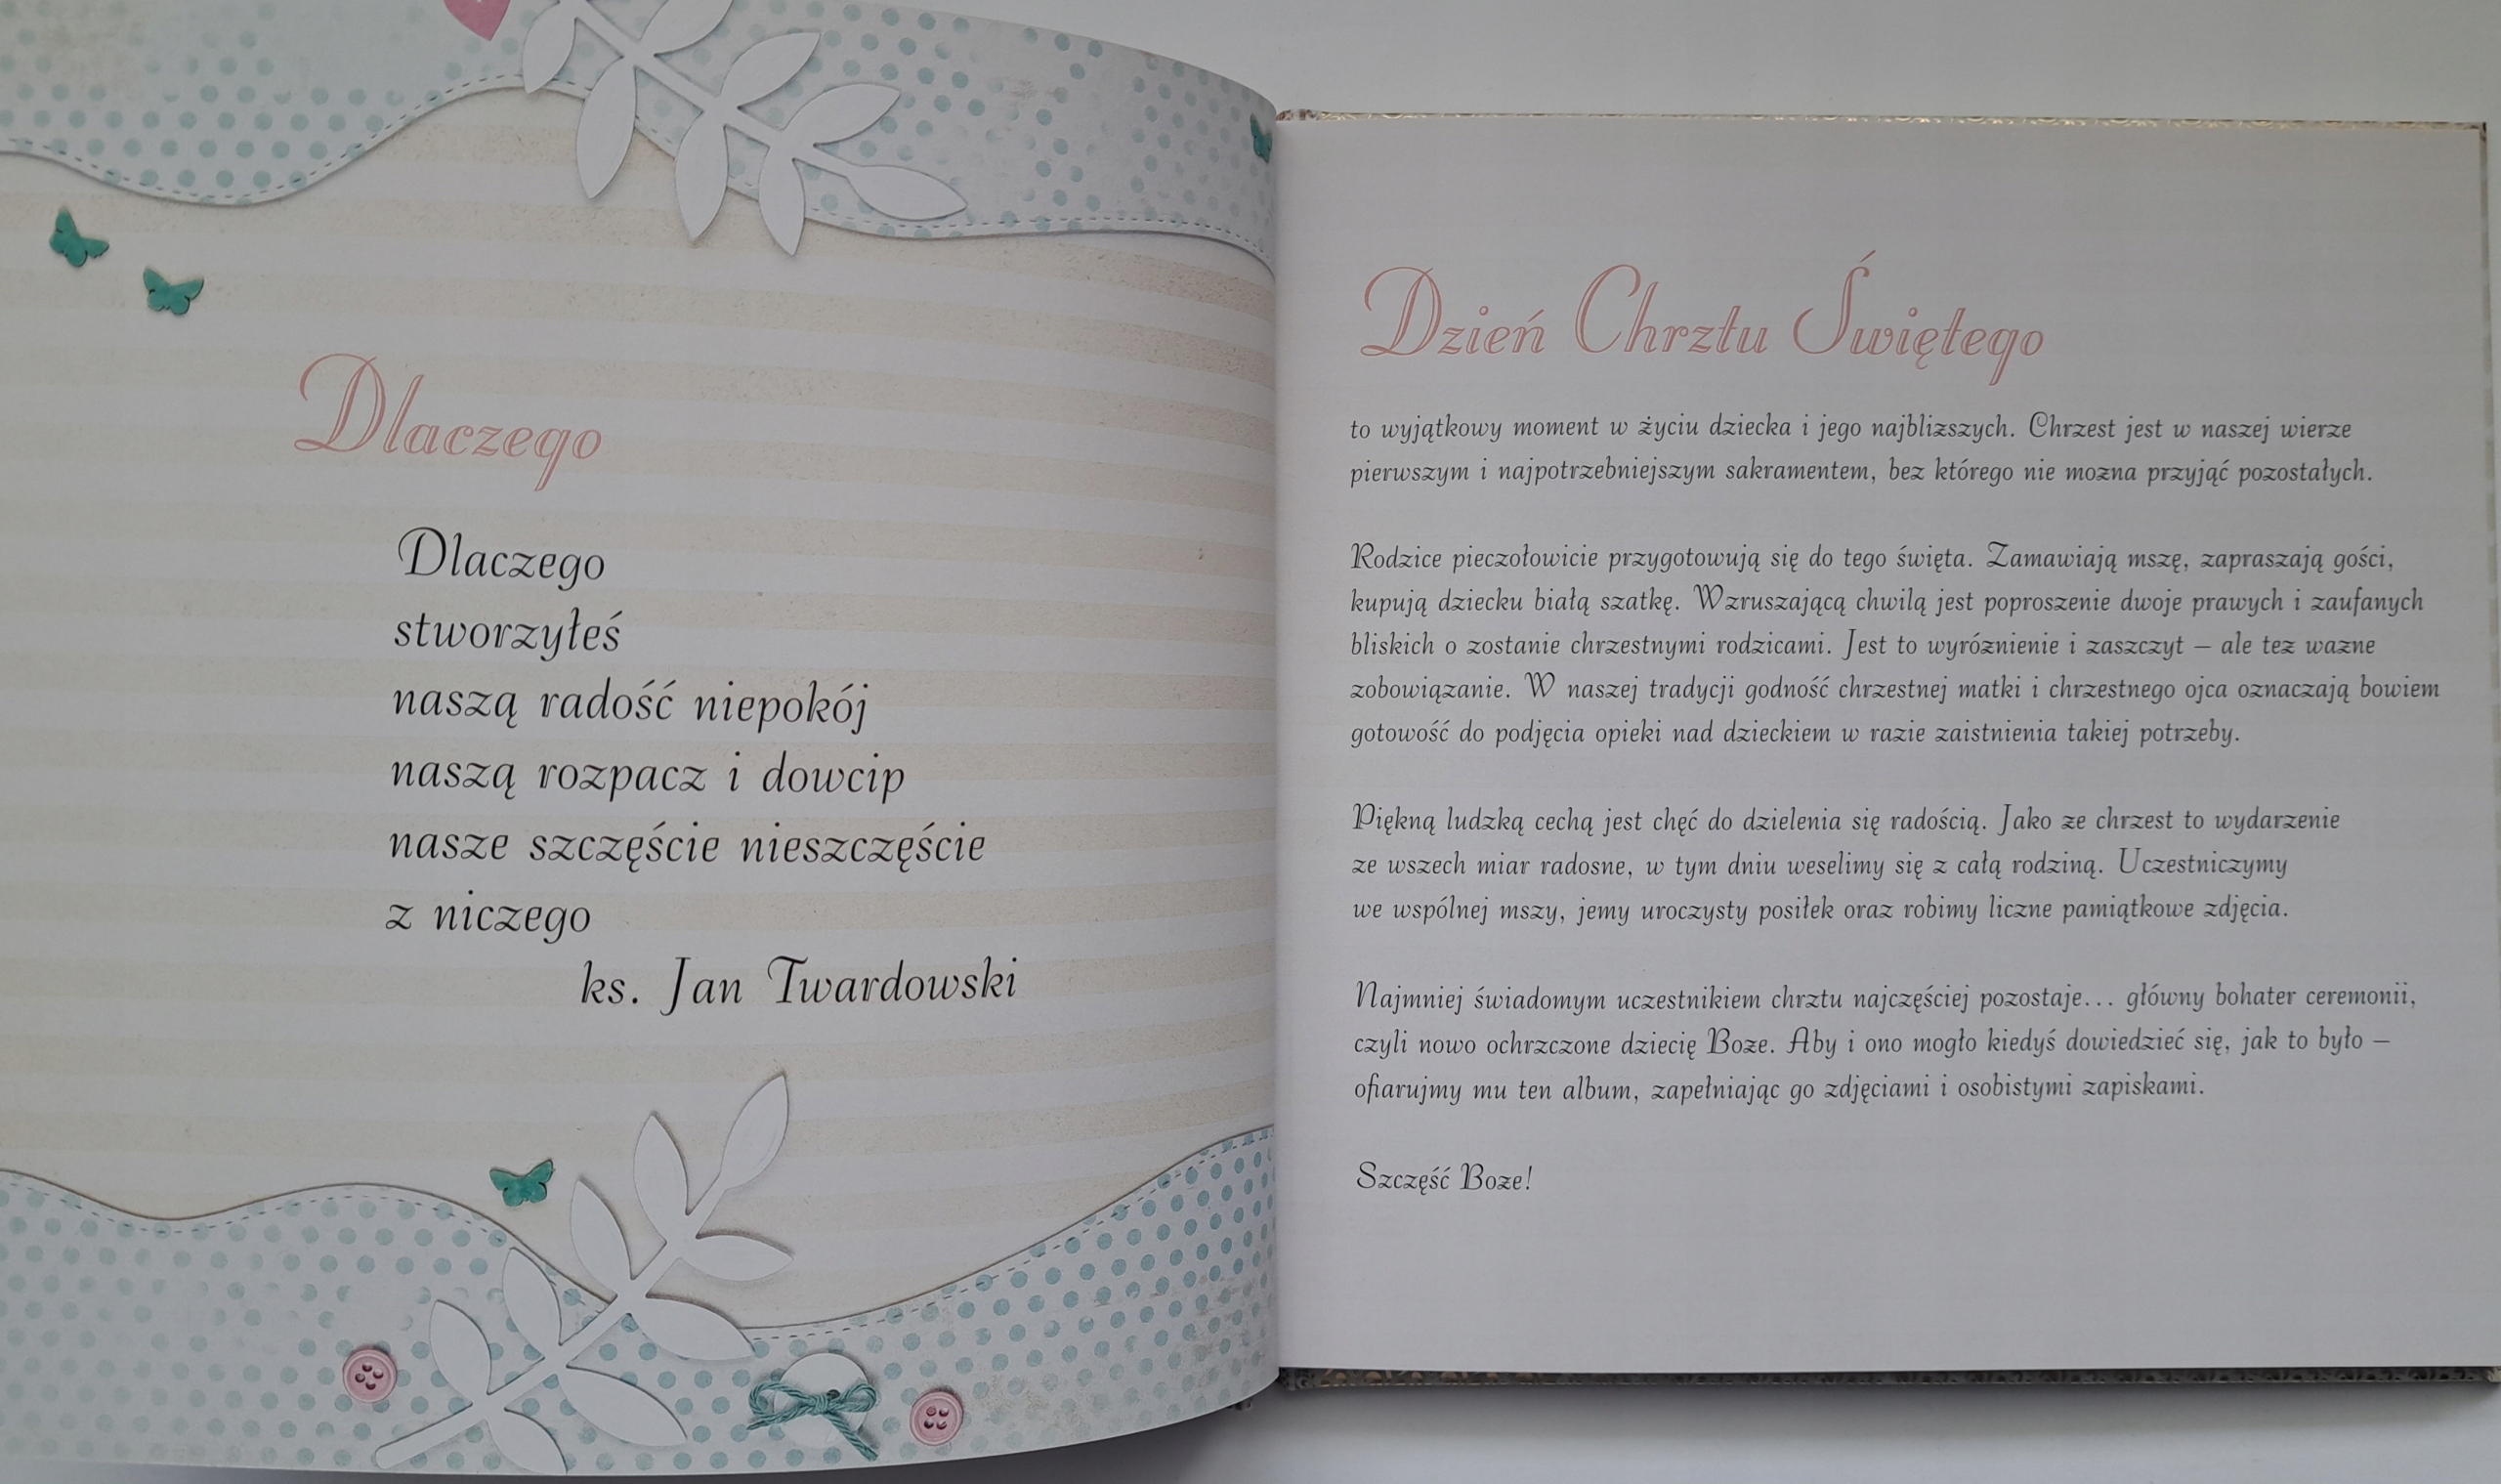 Dlaczego
Dlaczego
stworzyłeś
naszą radość niepokój
naszą rozpacz i dowcip
nasze szczęście nieszczęście
z niczego
ks. Jan Twardowski
Dzień Chrztu Świętego
to wyjątkowy moment w życiu dziecka i jego najbliższych. Chrzest jest w naszej wierze
pierwszym i najpotrzebniejszym sakramentem, bez którego nie mozna przyjąć pozostałych.
Rodzice pieczołowicie przygotowują się do tego święta. Zamawiają mszę, zapraszają gości,
kupują dziecku białą szatkę. Wzruszającą chwilą jest poproszenie dwoje prawych i zaufanych
bliskich o zostanie chrzestnymi rodzicami. Jest to wyróznienie i zaszczyt – ale tez wazne
zobowiązanie. W naszej tradycji godność chrzestnej matki i chrzestnego ojca oznaczają bowiem
gotowość do podjęcia opieki nad dzieckiem w razie zaistnienia takiej potrzeby.
Piękną ludzką cechą jest chęć do dzielenia się radością. Jako ze chrzest to wydarzenie
ze wszech miar radosne, w tym dniu weselimy się z całą rodziną. Uczestniczymy
we wspólnej mszy, jemy uroczysty posiłek oraz robimy liczne pamiątkowe zdjęcia.
Najmniej świadomym uczestnikiem chrztu najczęściej pozostaje... główny bohater ceremonii,
czyli nowo ochrzczone dziecię Boze. Aby i ono mogło kiedyś dowiedzieć się, jak to było –
ofiarujmy mu ten album, zapełniając go zdjęciami i osobistymi zapiskami.
Szczęść Boze!